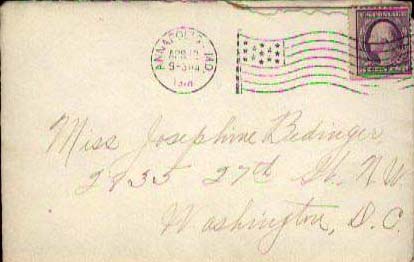 ANNAPOLIS, MD.
APR 12
9-30 A
1918
U.S. POSTAGE
Miss Josephine Bedinger
2835 27th St. N.W.
Washington, D.C.